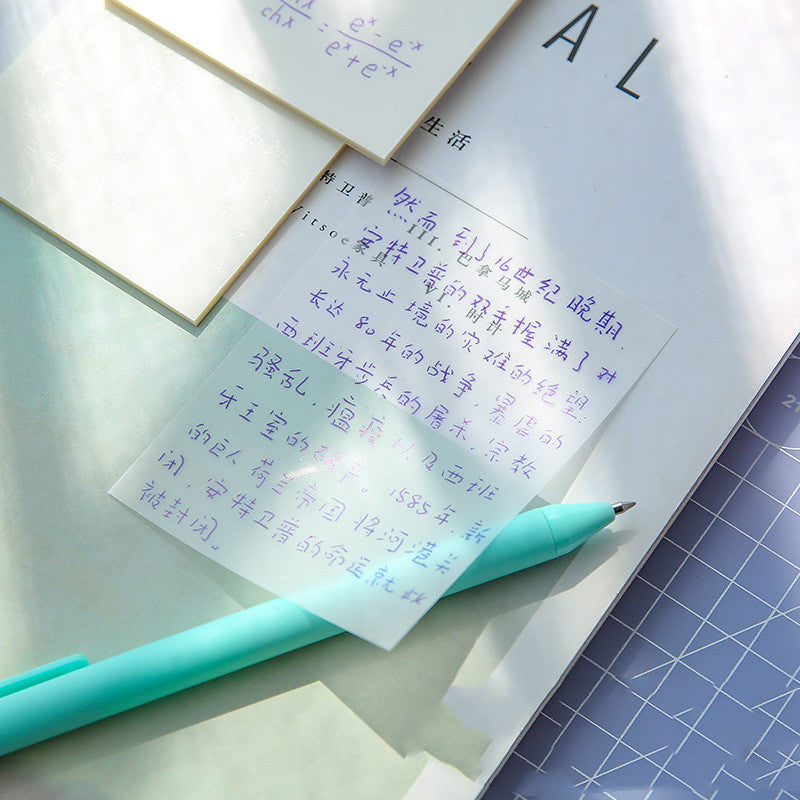 chx = e^x - e^-x
e^x + e^-x
A L
生活
特卫普
Vitsoe家具
III. 巴拿马城
VI. 时计
然而 到了16世纪晚期,
安特卫普的双手握满了对
永无止境的灾难的绝望:
长达80年的战争,暴虐的
西班牙步兵的屠杀,宗教
骚乱,瘟疫以及西班
牙王室的破产。1585年,新
的巨人荷兰帝国将河港关
闭,安特卫普的命运就此
被封闭。